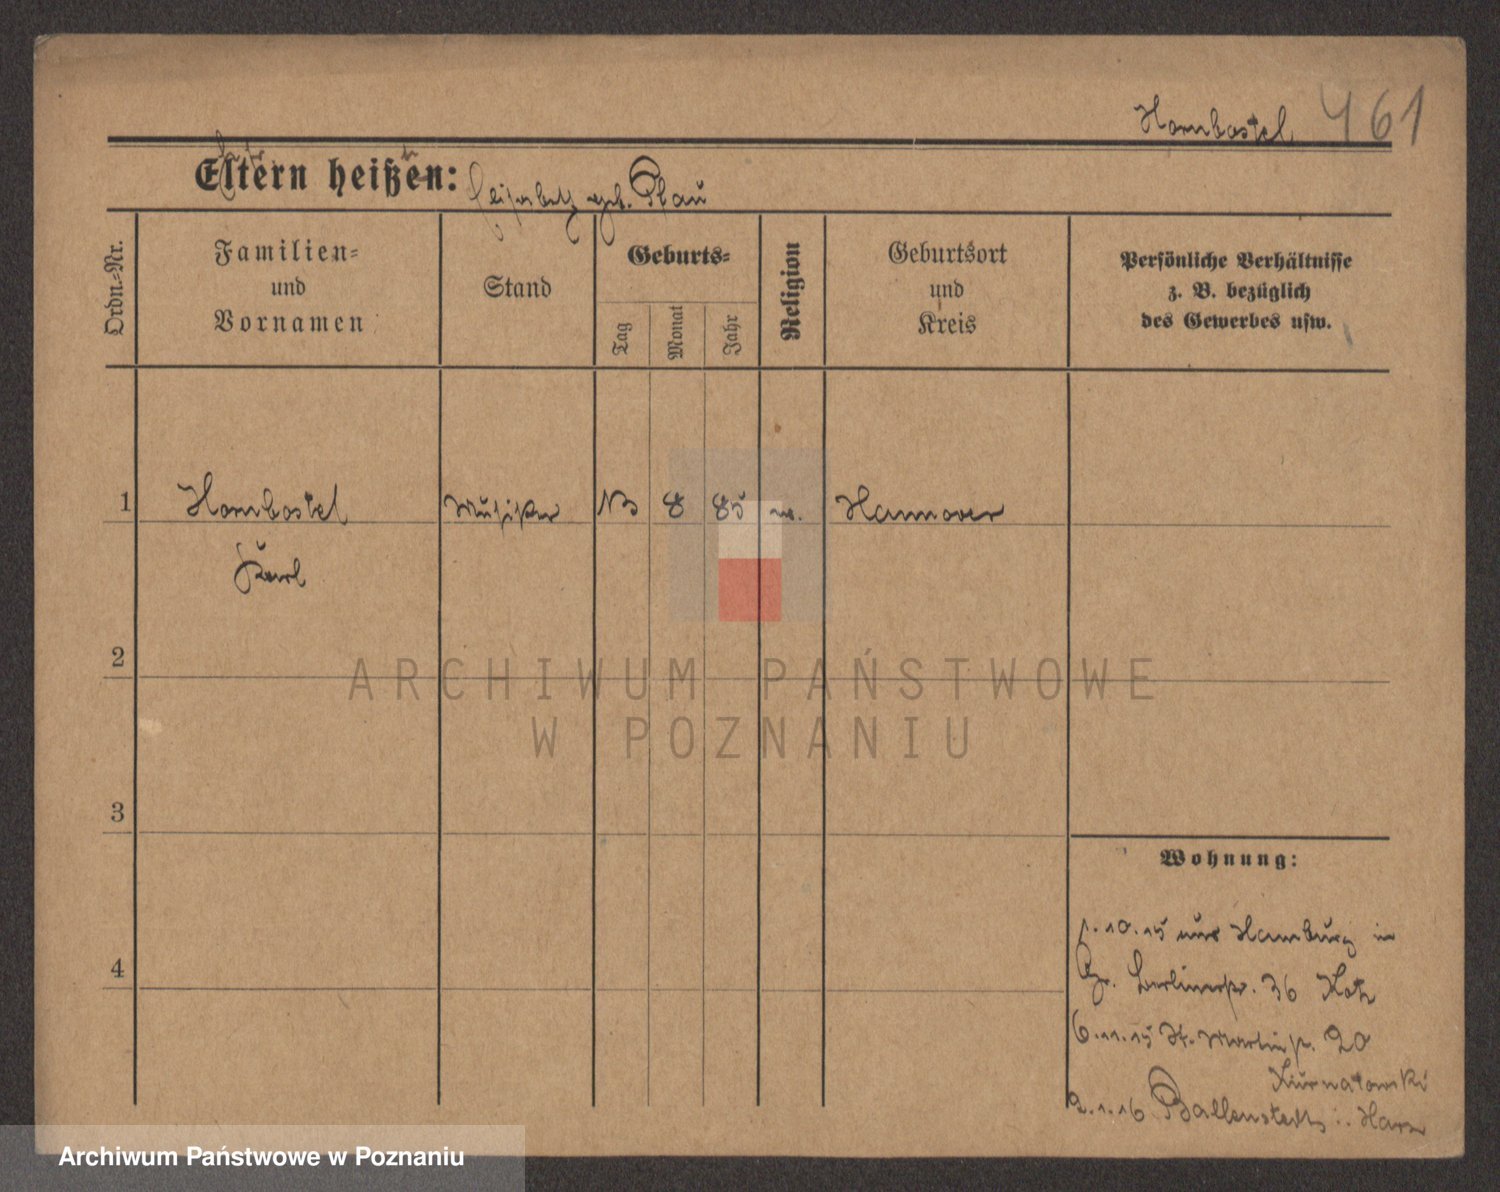 Hornbostel 461
Eltern heißen: Elisabeth geb. Pfau
Ordn.-Nr.
Familien-
und
Vornamen
Stand
Geburts-
Tag
Monat
Jahr
Religion
Geburtsort
und
Kreis
Persönliche Verhältnisse
z. B. bezüglich
des Gewerbes usw.
1 Hornbostel Musiker 13 8 85 ev. Hannover
Karl
2
3
4
Wohnung:
1.10.15 aus Hamburg in
Berlinerstr. 36
6.11.15 St. Martinstr. 20
Kurnatowski
2.1.16 Ballenstedt i. Harz
ARCHIWUM PAŃSTWOWE
W POZNANIU
Archiwum Państwowe w Poznaniu